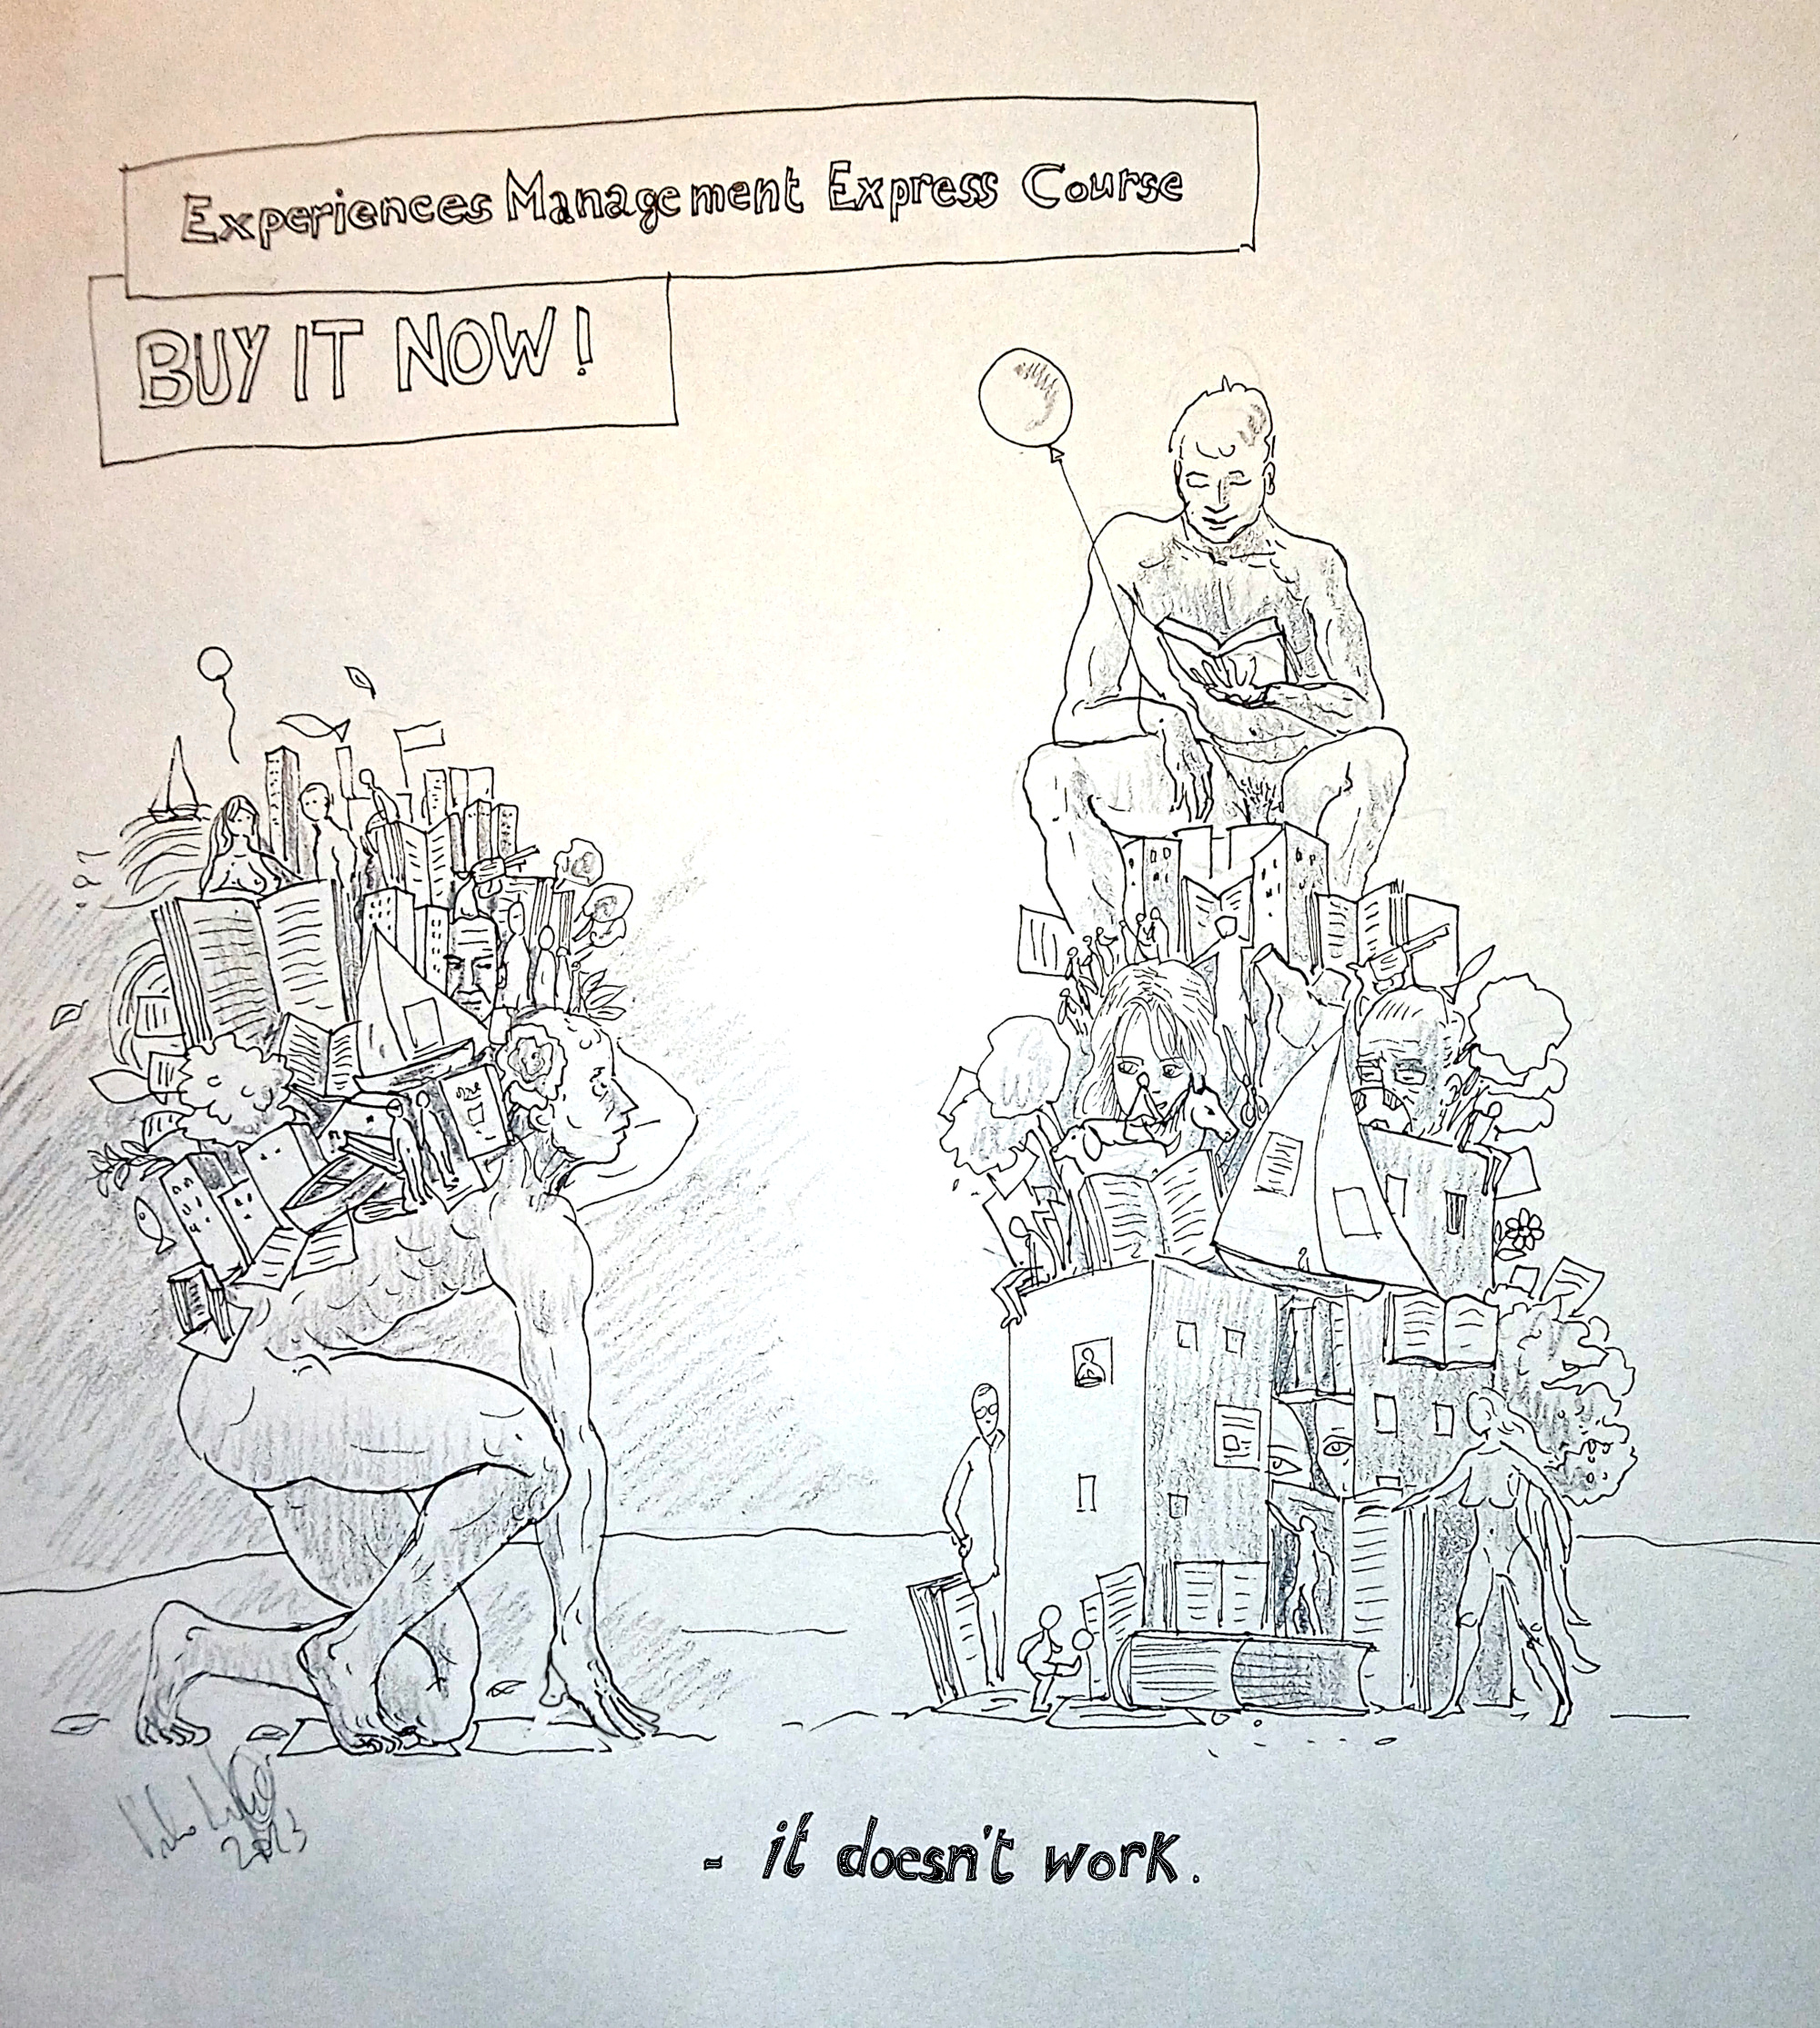 Experiences Management Express Course
BUY IT NOW!
- it doesn't work.